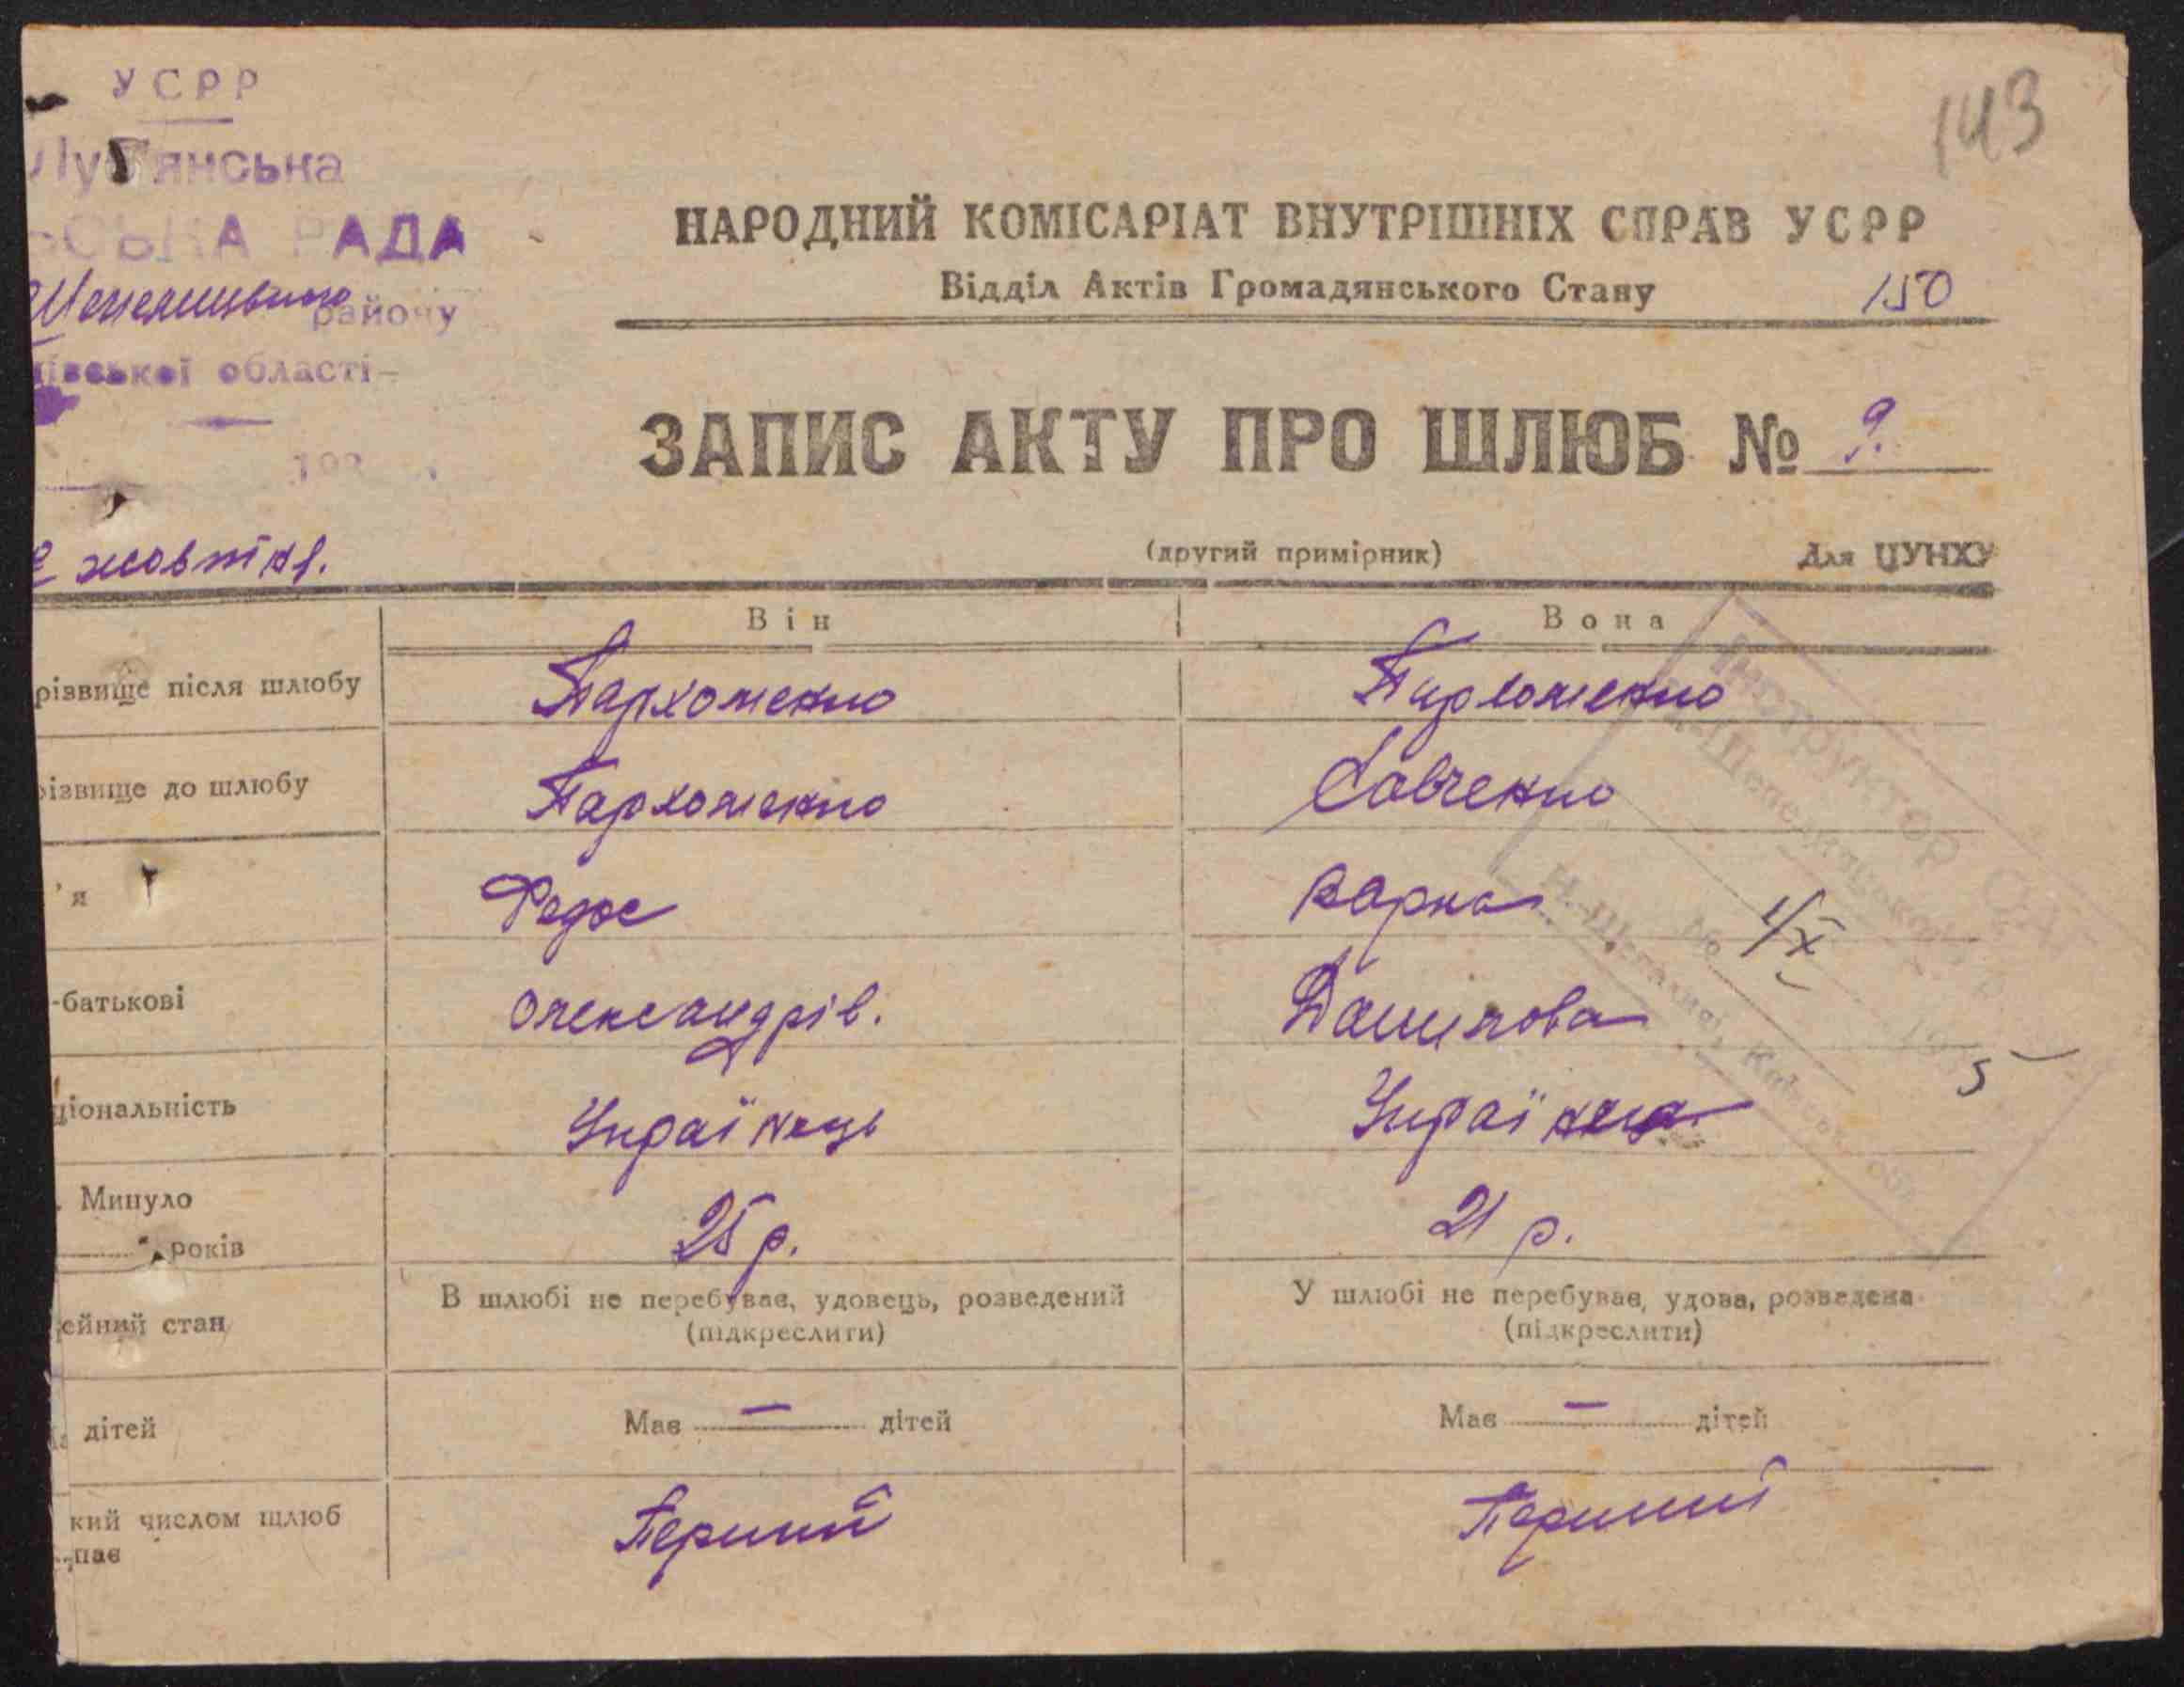 УСРР
Луб'янська
СЬКА РАДА
району
ївської області
193
жовтня.
143
НАРОДНИЙ КОМІСАРІАТ ВНУТРІШНІХ СПРАВ УСРР
Відділ Актів Громадянського Стану
150
ЗАПИС АКТУ ПРО ШЛЮБ № 9.
(другий примірник)
Для ЦУНХУ
Він Вона
різвище після шлюбу Пархоменко Пархоменко
різвище до шлюбу Пархоменко Савченко
'я Федос Варка
-батькові Олександрів. Данилова
ціональність Українець Українка
Минуло
років 25 р. 21 р.
ейний стан В шлюбі не перебував, удовець, розведений У шлюбі не перебував, удова, розведена
(підкреслити) (підкреслити)
дітей Має — дітей Має — дітей
кий числом шлюб Перший Перший
пає
Інструктор
1/X
5